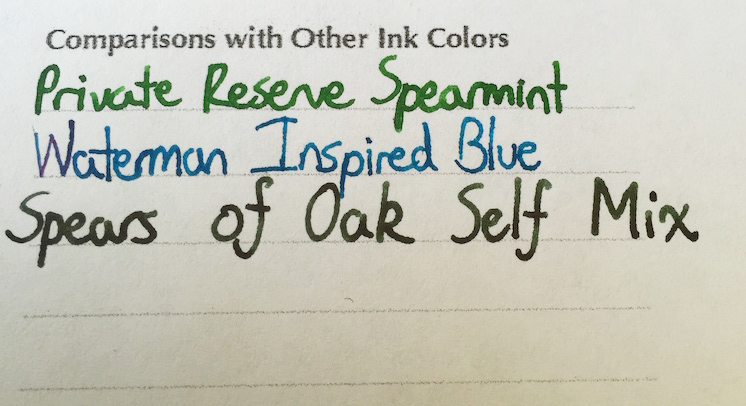 Comparisons with Other Ink Colors
Private Reserve Spearmint
Waterman Inspired Blue
Spears of Oak Self Mix